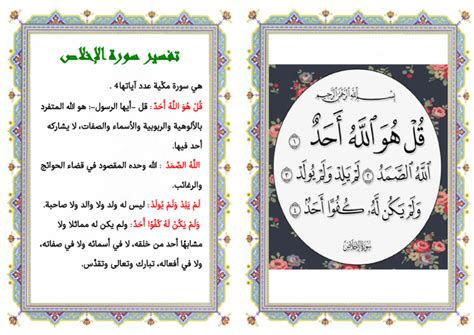 تفسير سورة الإخلاص
هي سورة مكّية عدد آياتها4 .
قُلْ هُوَ اللَّهُ أَحَدٌ : قل -أيها الرسول-: هو الله المتفرد
بالألوهية والربوبية والأسماء والصفات، لا يشاركه
أحد فيها.
اللَّهُ الصَّمَدُ : الله وحده المقصود في قضاء الحوائج
والرغائب.
لَمْ يَلِدْ وَلَمْ يُولَدْ: ليس له ولد ولا والد ولا صاحبة.
وَلَمْ يَكُنْ لَهُ كُفُوًا أَحَدٌ : ولم يكن له مماثلا ولا
مشابهًا أحد من خلقه، لا في أسمائه ولا في صفاته،
ولا في أفعاله، تبارك وتعالى وتقدَّس.
بِسْمِ اللَّهِ الرَّحْمَٰنِ الرَّحِيمِ
قُلْ هُوَ اللَّهُ أَحَدٌ ١
اللَّهُ الصَّمَدُ ٢ لَمْ يَلِدْ وَلَمْ يُولَدْ ٣
وَلَمْ يَكُن لَّهُ كُفُوًا أَحَدٌ ٤
سورة الإخلاص